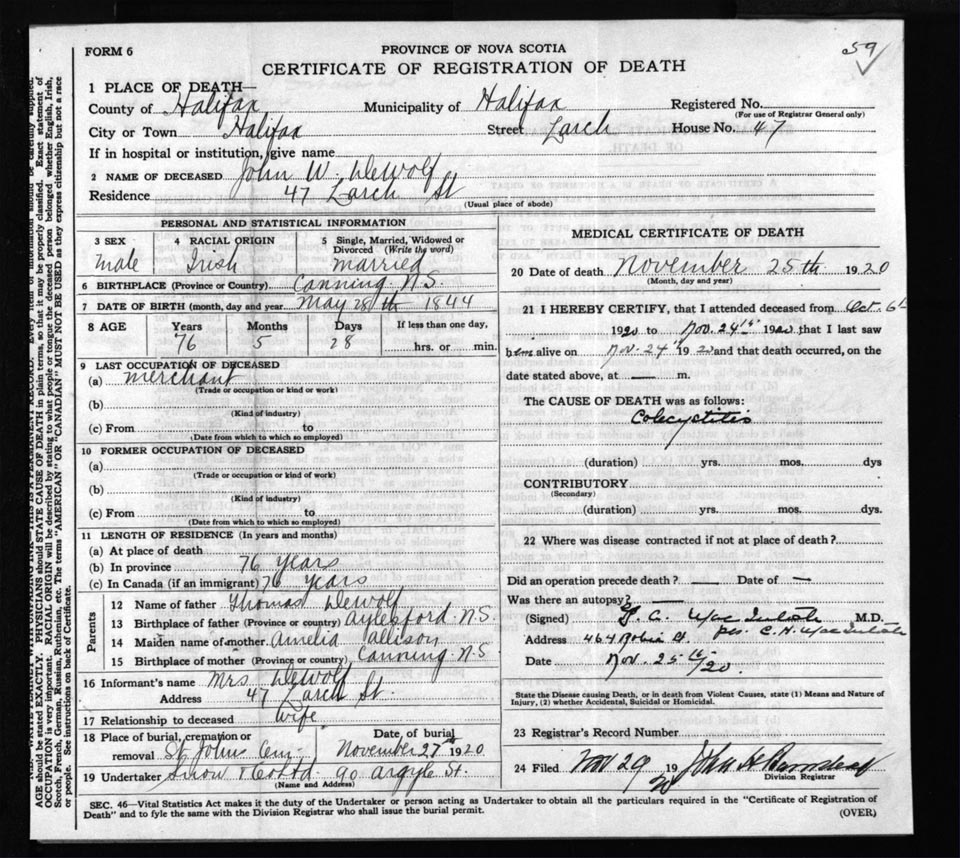 59
FORM 6
PROVINCE OF NOVA SCOTIA
CERTIFICATE OF REGISTRATION OF DEATH
1 PLACE OF DEATH—
County of Halifax Municipality of Halifax Registered No.
(For use of Registrar General only)
City or Town Halifax Street Larch House No. 47
If in hospital or institution, give name
2 NAME OF DECEASED John W. DeWolf
Residence 47 Larch St
(Usual place of abode)
PERSONAL AND STATISTICAL INFORMATION
3 SEX 4 RACIAL ORIGIN 5 Single, Married, Widowed or Divorced (Write the word)
male Irish married
6 BIRTHPLACE (Province or Country) Canning N.S.
7 DATE OF BIRTH (month, day and year) May 28th 1844
8 AGE Years Months Days If less than one day,
76 5 28 hrs. or min.
9 LAST OCCUPATION OF DECEASED
(a) merchant
(Trade or occupation or kind or work)
(b)
(Kind of industry)
(c) From to
(Date from which to which so employed)
10 FORMER OCCUPATION OF DECEASED
(a)
(Trade or occupation or kind of work)
(b)
(Kind of industry)
(c) From to
(Date from which to which so employed)
11 LENGTH OF RESIDENCE (In years and months)
(a) At place of death
(b) In province 76 years
(c) In Canada (if an immigrant) 76 years
Parents
12 Name of father Thomas DeWolf
13 Birthplace of father (Province or country) Aylesford. N.S.
14 Maiden name of mother Amelia Allison
15 Birthplace of mother (Province or country) Canning N.S
16 Informant's name Mrs DeWolf
Address 47 Larch St.
17 Relationship to deceased Wife
18 Place of burial, cremation or removal St. Johns Cem. Date of burial November 27th 1920
19 Undertaker Snow & Co Ltd. 90 Argyle St.
(Name and Address)
MEDICAL CERTIFICATE OF DEATH
20 Date of death November 25th 1920
(Month, day and year)
21 I HEREBY CERTIFY, that I attended deceased from Oct. 6th
1920 to Nov. 24th 1920 that I last saw
him alive on Nov. 24" 1920 and that death occurred, on the
date stated above, at — m.
The CAUSE OF DEATH was as follows:
Colecystitis
(duration) yrs. mos. dys
CONTRIBUTORY
(Secondary)
(duration) yrs. mos. dys.
22 Where was disease contracted if not at place of death?
Did an operation precede death? — Date of —
Was there an autopsy? —
(Signed) MacIntosh M.D.
Address 464 Robie St. per. C. H. MacIntosh
Date Nov. 25th/20.
State the Disease causing Death, or in death from Violent Causes, state (1) Means and Nature of
Injury, (2) whether Accidental, Suicidal or Homicidal.
23 Registrar's Record Number
24 Filed Nov 29 1920 John H Barnstead
Division Registrar
SEC. 46—Vital Statistics Act makes it the duty of the Undertaker or person acting as Undertaker to obtain all the particulars required in the "Certificate of Registration of
Death" and to fyle the same with the Division Registrar who shall issue the burial permit.
(OVER)
AGE should be stated EXACTLY. PHYSICIANS should STATE CAUSE OF DEATH in plain terms, so that it may be properly classified. Exact statement of
OCCUPATION is very important. RACIAL ORIGIN will be described by stating to what people or tongue the deceased person belonged whether English, Irish,
Scotch, French, German, Russian, Ruthenian, etc. The terms "AMERICAN" OR "CANADIAN" MUST NOT BE USED as they express citizenship but not a race
or people. See instructions on back of Certificate.